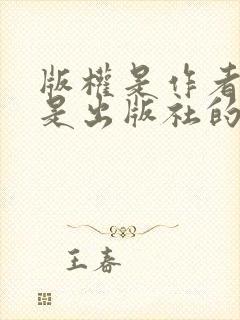 版權是作者
是出版社的
王春